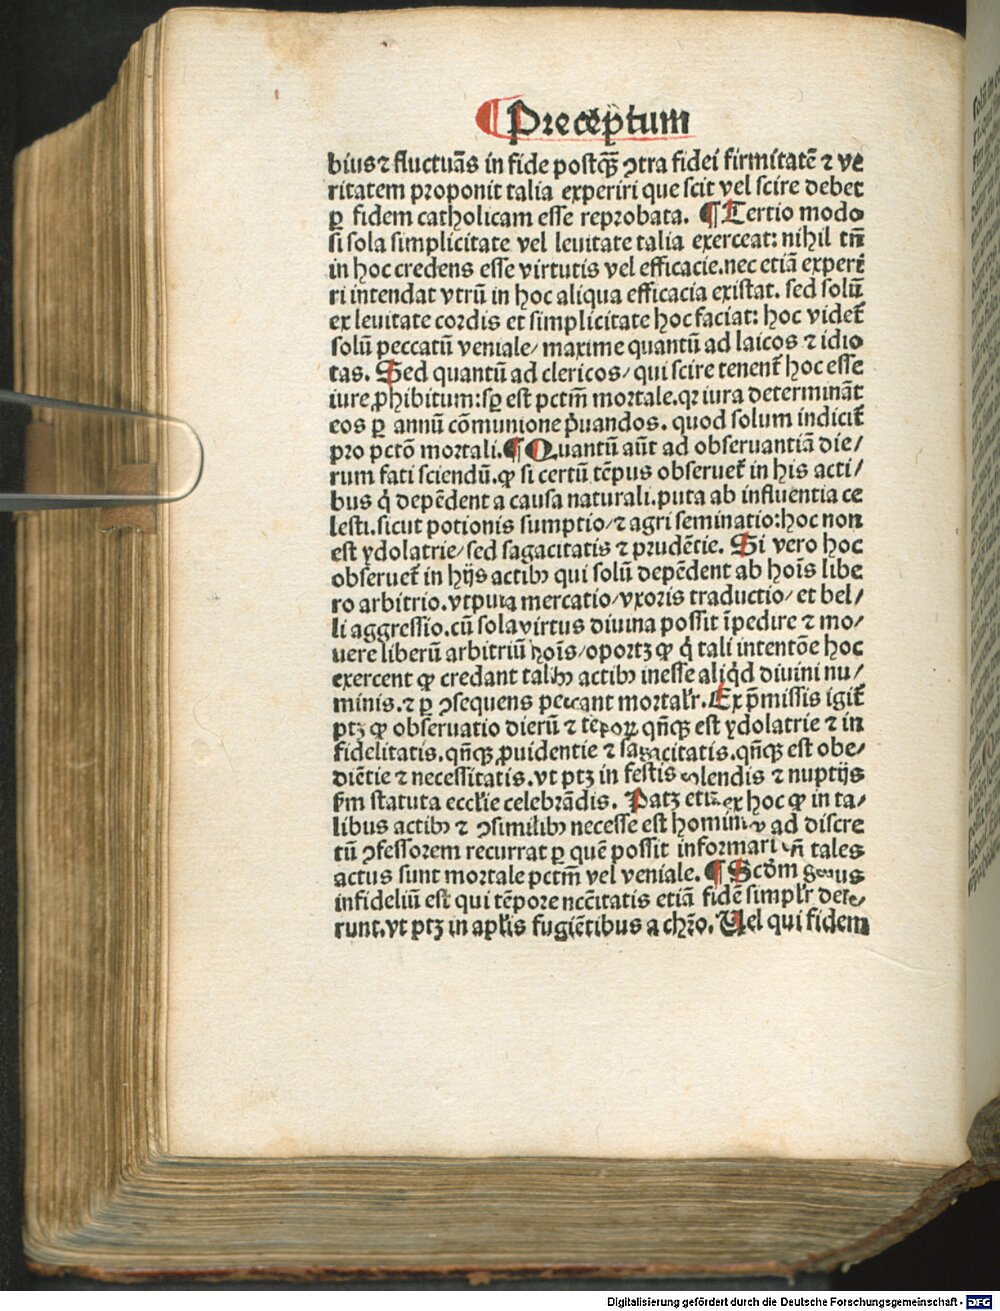 ¶ Preceptum
bius ⁊ fluctuās in fide postꝙ̄ ꝯtra fidei firmitatē ⁊ ve
ritatem proponit talia experiri que scit vel scire debet
ꝑ fidem catholicam esse reprobata. ¶ Tertio modo
si sola simplicitate vel leuitate talia exerceat: nihil tn̄
in hoc credens esse virtutis vel efficacie. nec etiā experi
ri intendat vtrū in hoc aliqua efficacia existat. sed solū
ex leuitate cordis et simplicitate hoc faciat: hoc videt᷑
solū peccatū veniale/ maxime quantū ad laicos ⁊ idio
tas. Sed quantū ad clericos/ qui scire tenent᷑ hoc esse
iure ꝓhibitum: sꝑ est pctm̄ mortale. qꝛ iura determināt
eos ꝑ annū cōmunione p̄uandos. quod solum indicit᷑
pro pctō mortali. ¶ Quantū aūt ad obseruantiā die/
rum fati sciendū. ꝙ si certū tēpus obseruet᷑ in his acti/
bus q̇ depēdent a causa naturali. puta ab influentia ce
lesti. sicut potionis sumptio/ ⁊ agri seminatio: hoc non
est ydolatrie/ sed sagacitatis ⁊ prudētie. Si vero hoc
obseruet᷑ in hijs actibꝫ qui solū depēdent ab hoīs libe
ro arbitrio. vtputa mercatio/ vxoris traductio/ et bel/
li aggressio. cū sola virtus diuina possit īpedire ⁊ mo/
uere liberū arbitriū hoīs/ oportꝫ ꝙ q̇ tali intentōe hoc
exercent ꝙ credant talibꝫ actibꝫ inesse aliq̇d diuini nu/
minis. ⁊ ꝑ ꝯsequens peccant mortalr̄. Ex p̄missis igit᷑
ptꝫ ꝙ obseruatio dierū ⁊ tēpoꝝ qn̄qꝫ est ydolatrie ⁊ in
fidelitatis. qn̄qꝫ ꝓuidentie ⁊ sagacitatis. qn̄qꝫ est obe/
diētie ⁊ necessitatis. vt ptꝫ in festis colendis ⁊ nuptijs
fm̄ statuta ecclīe celebrādis. Patꝫ etiā ex hoc ꝙ in ta/
libus actibꝫ ⁊ ꝯsimilibꝫ necesse est homini ad discre
tū ꝯfessorem recurrat ꝑ quē possit informari tales
actus sunt mortale pctm̄ vel veniale. ¶ Scd̄m genus
infideliū est qui tēpore nēcitatis etiā fidē simplr̄ dese/
runt. vt ptꝫ in aplīs fugiētibus a chrō. Uel qui fidem
Digitalisierung gefördert durch die Deutsche Forschungsgemeinschaft - DFG